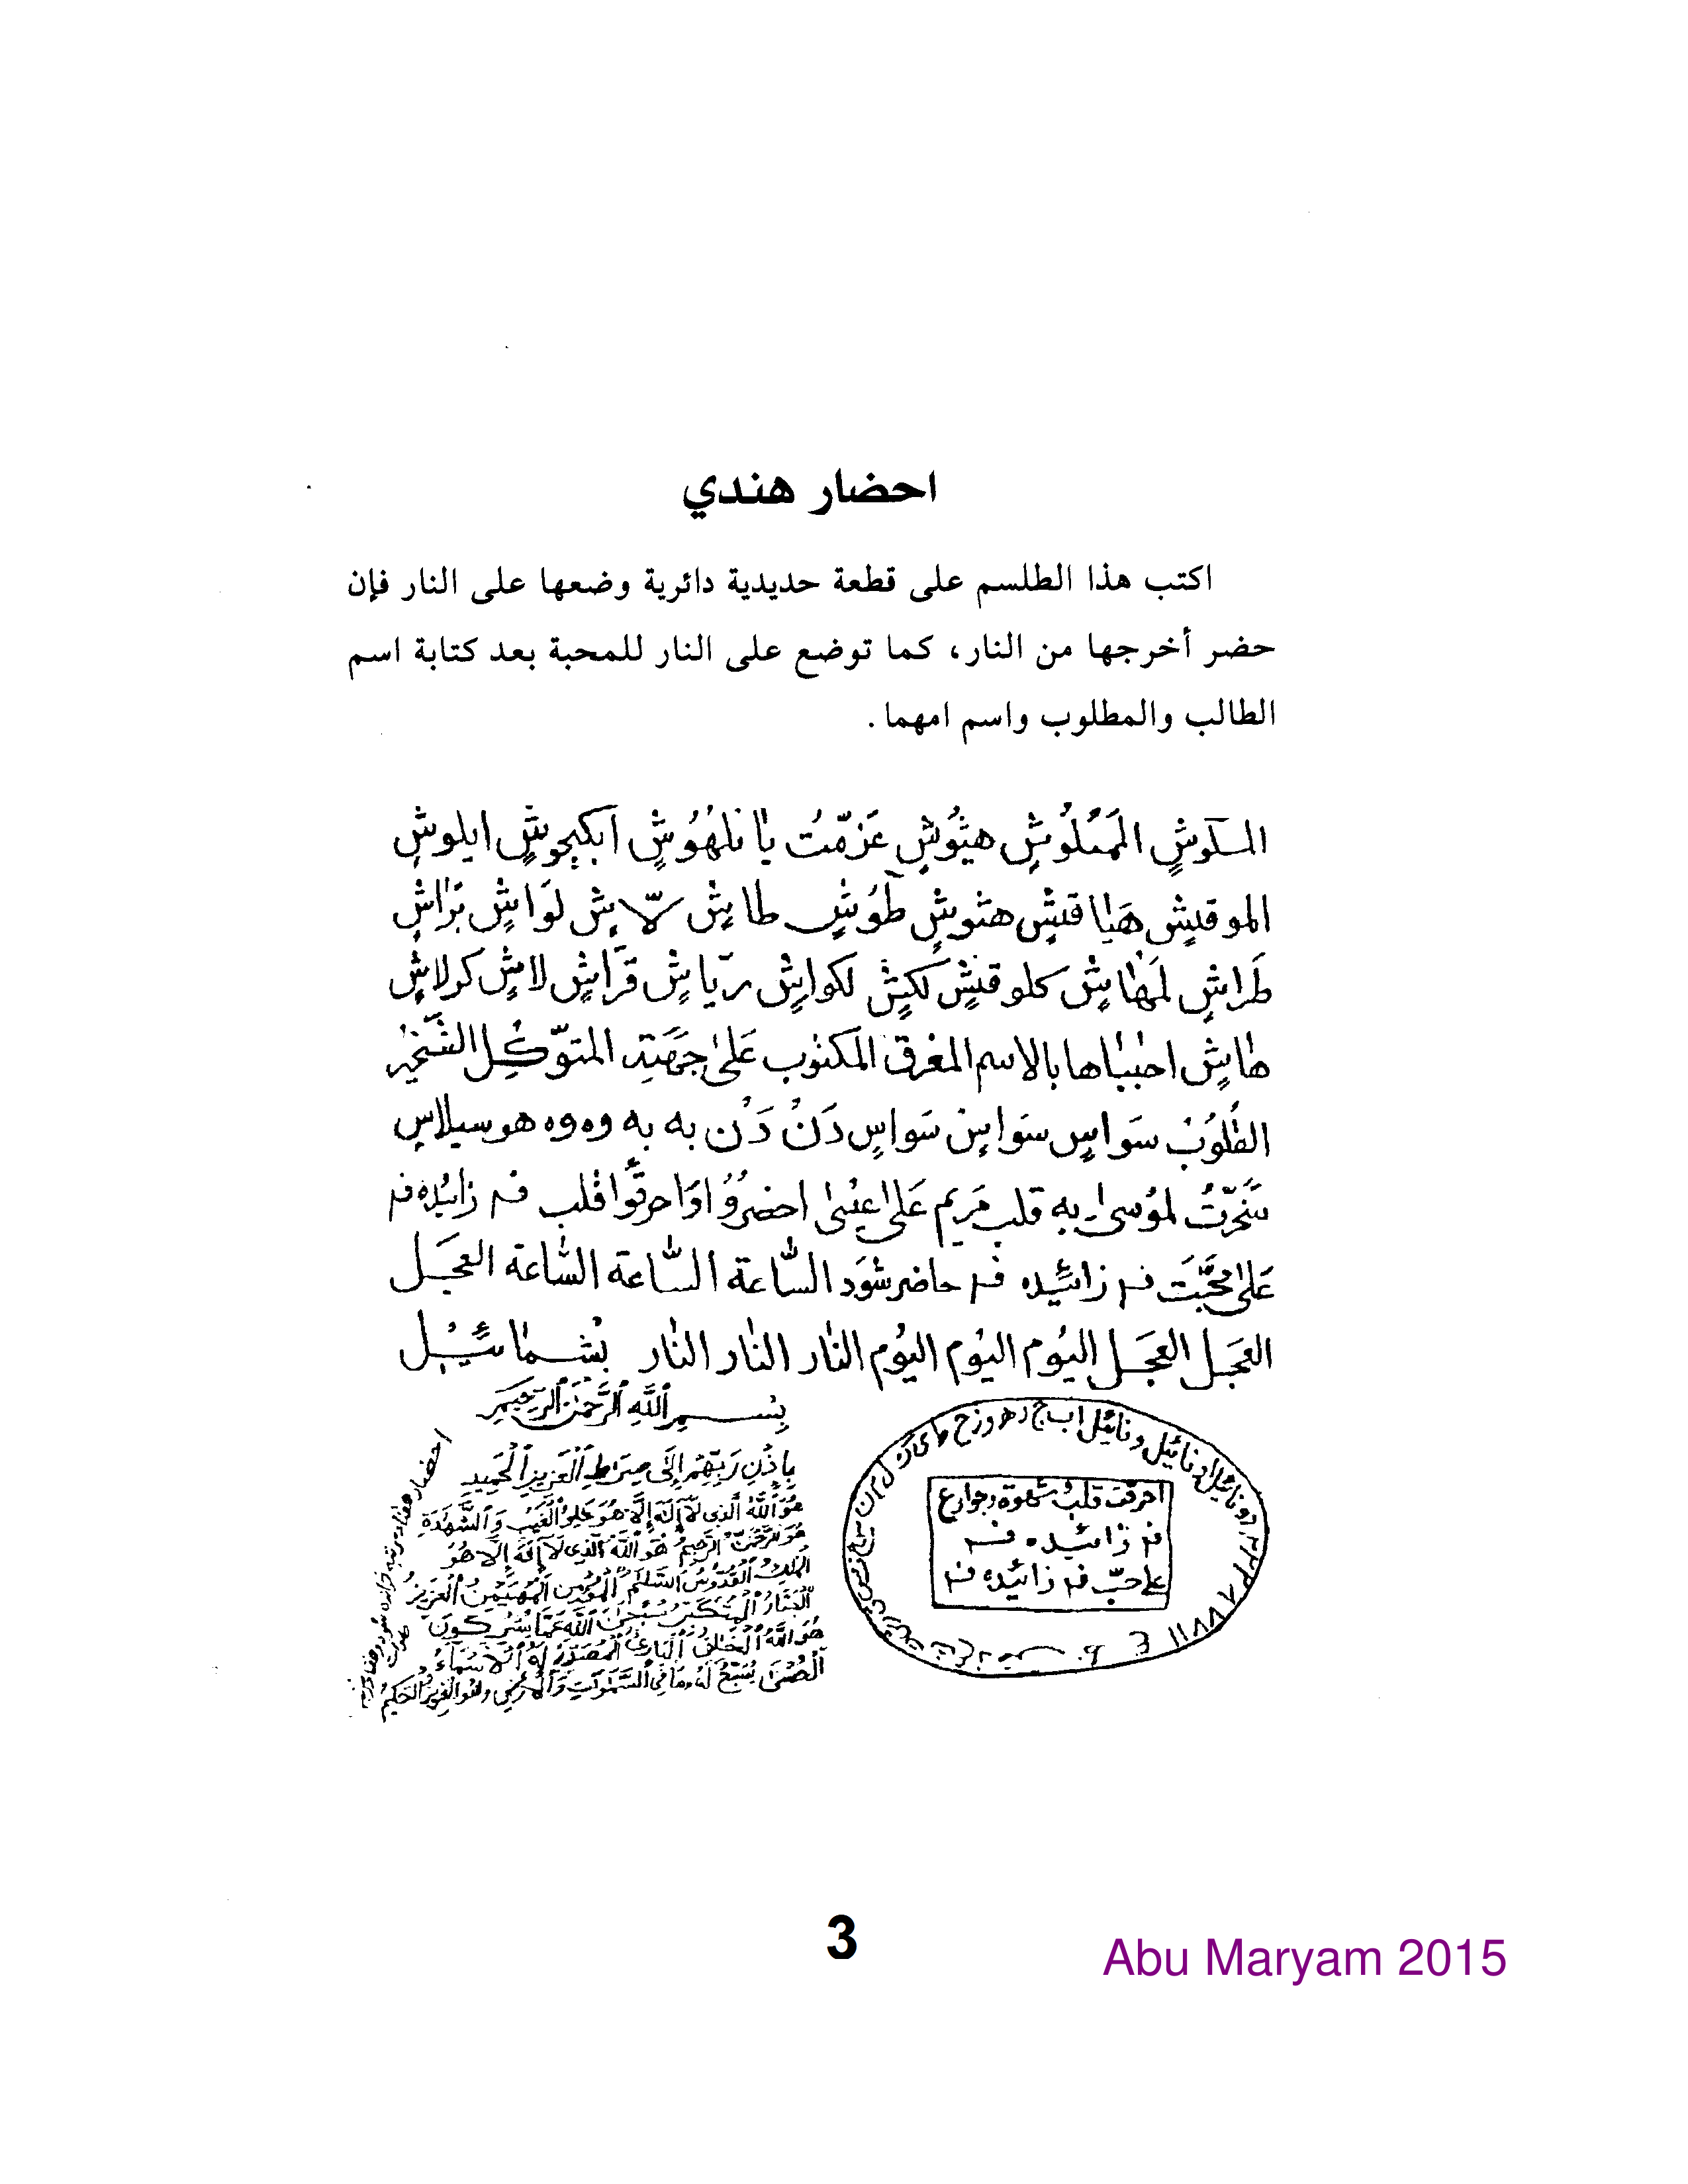 احضار هندي
اكتب هذا الطلسم على قطعة حديدية دائرية وضعها على النار فإن
حضر أخرجها من النار، كما توضع على النار للمحبة بعد كتابة اسم
الطالب والمطلوب واسم امهما .
هيثوش عزمت يا ايلوش
هثوش طوش طاش لاش لواش براش
طراش لمهاش كلوقنش لكنش لكواش رياش قراش لاش كرلاش
هاش بالاسم المكتوب على
القلوب سواس سواس سواس دن دن به به وه وه هو سيلاس
سخرت لموسى به قلب مريم على عيسى احضروا واحرقوا قلب فم زائيده فم
على محبت فم زائيده فم حاضر شود الساعة الساعة الساعة العجل
العجل العجل اليوم اليوم اليوم النار النار النار
بسم الله الرحمن الرحيم
بإذن ربهم إلى صراط العزيز الحميد
هو الله الذي لا إله إلا هو علم الغيب والشهدة
هو الرحمن الرحيم هو الله الذي لا إله إلا هو
الملك القدوس السلم المؤمن المهيمن العزيز
الجبار المتكبر سبحن الله عما يشركون
هو الله الخلق البارئ المصور له الاسماء
الحسنى يسبح له ما في السموت والأرض وهو العزيز الحكيم
احرقت قلب شهوة وجوارع
فم زائيده فم
على حب فم زائيده فم
3
Abu Maryam 2015